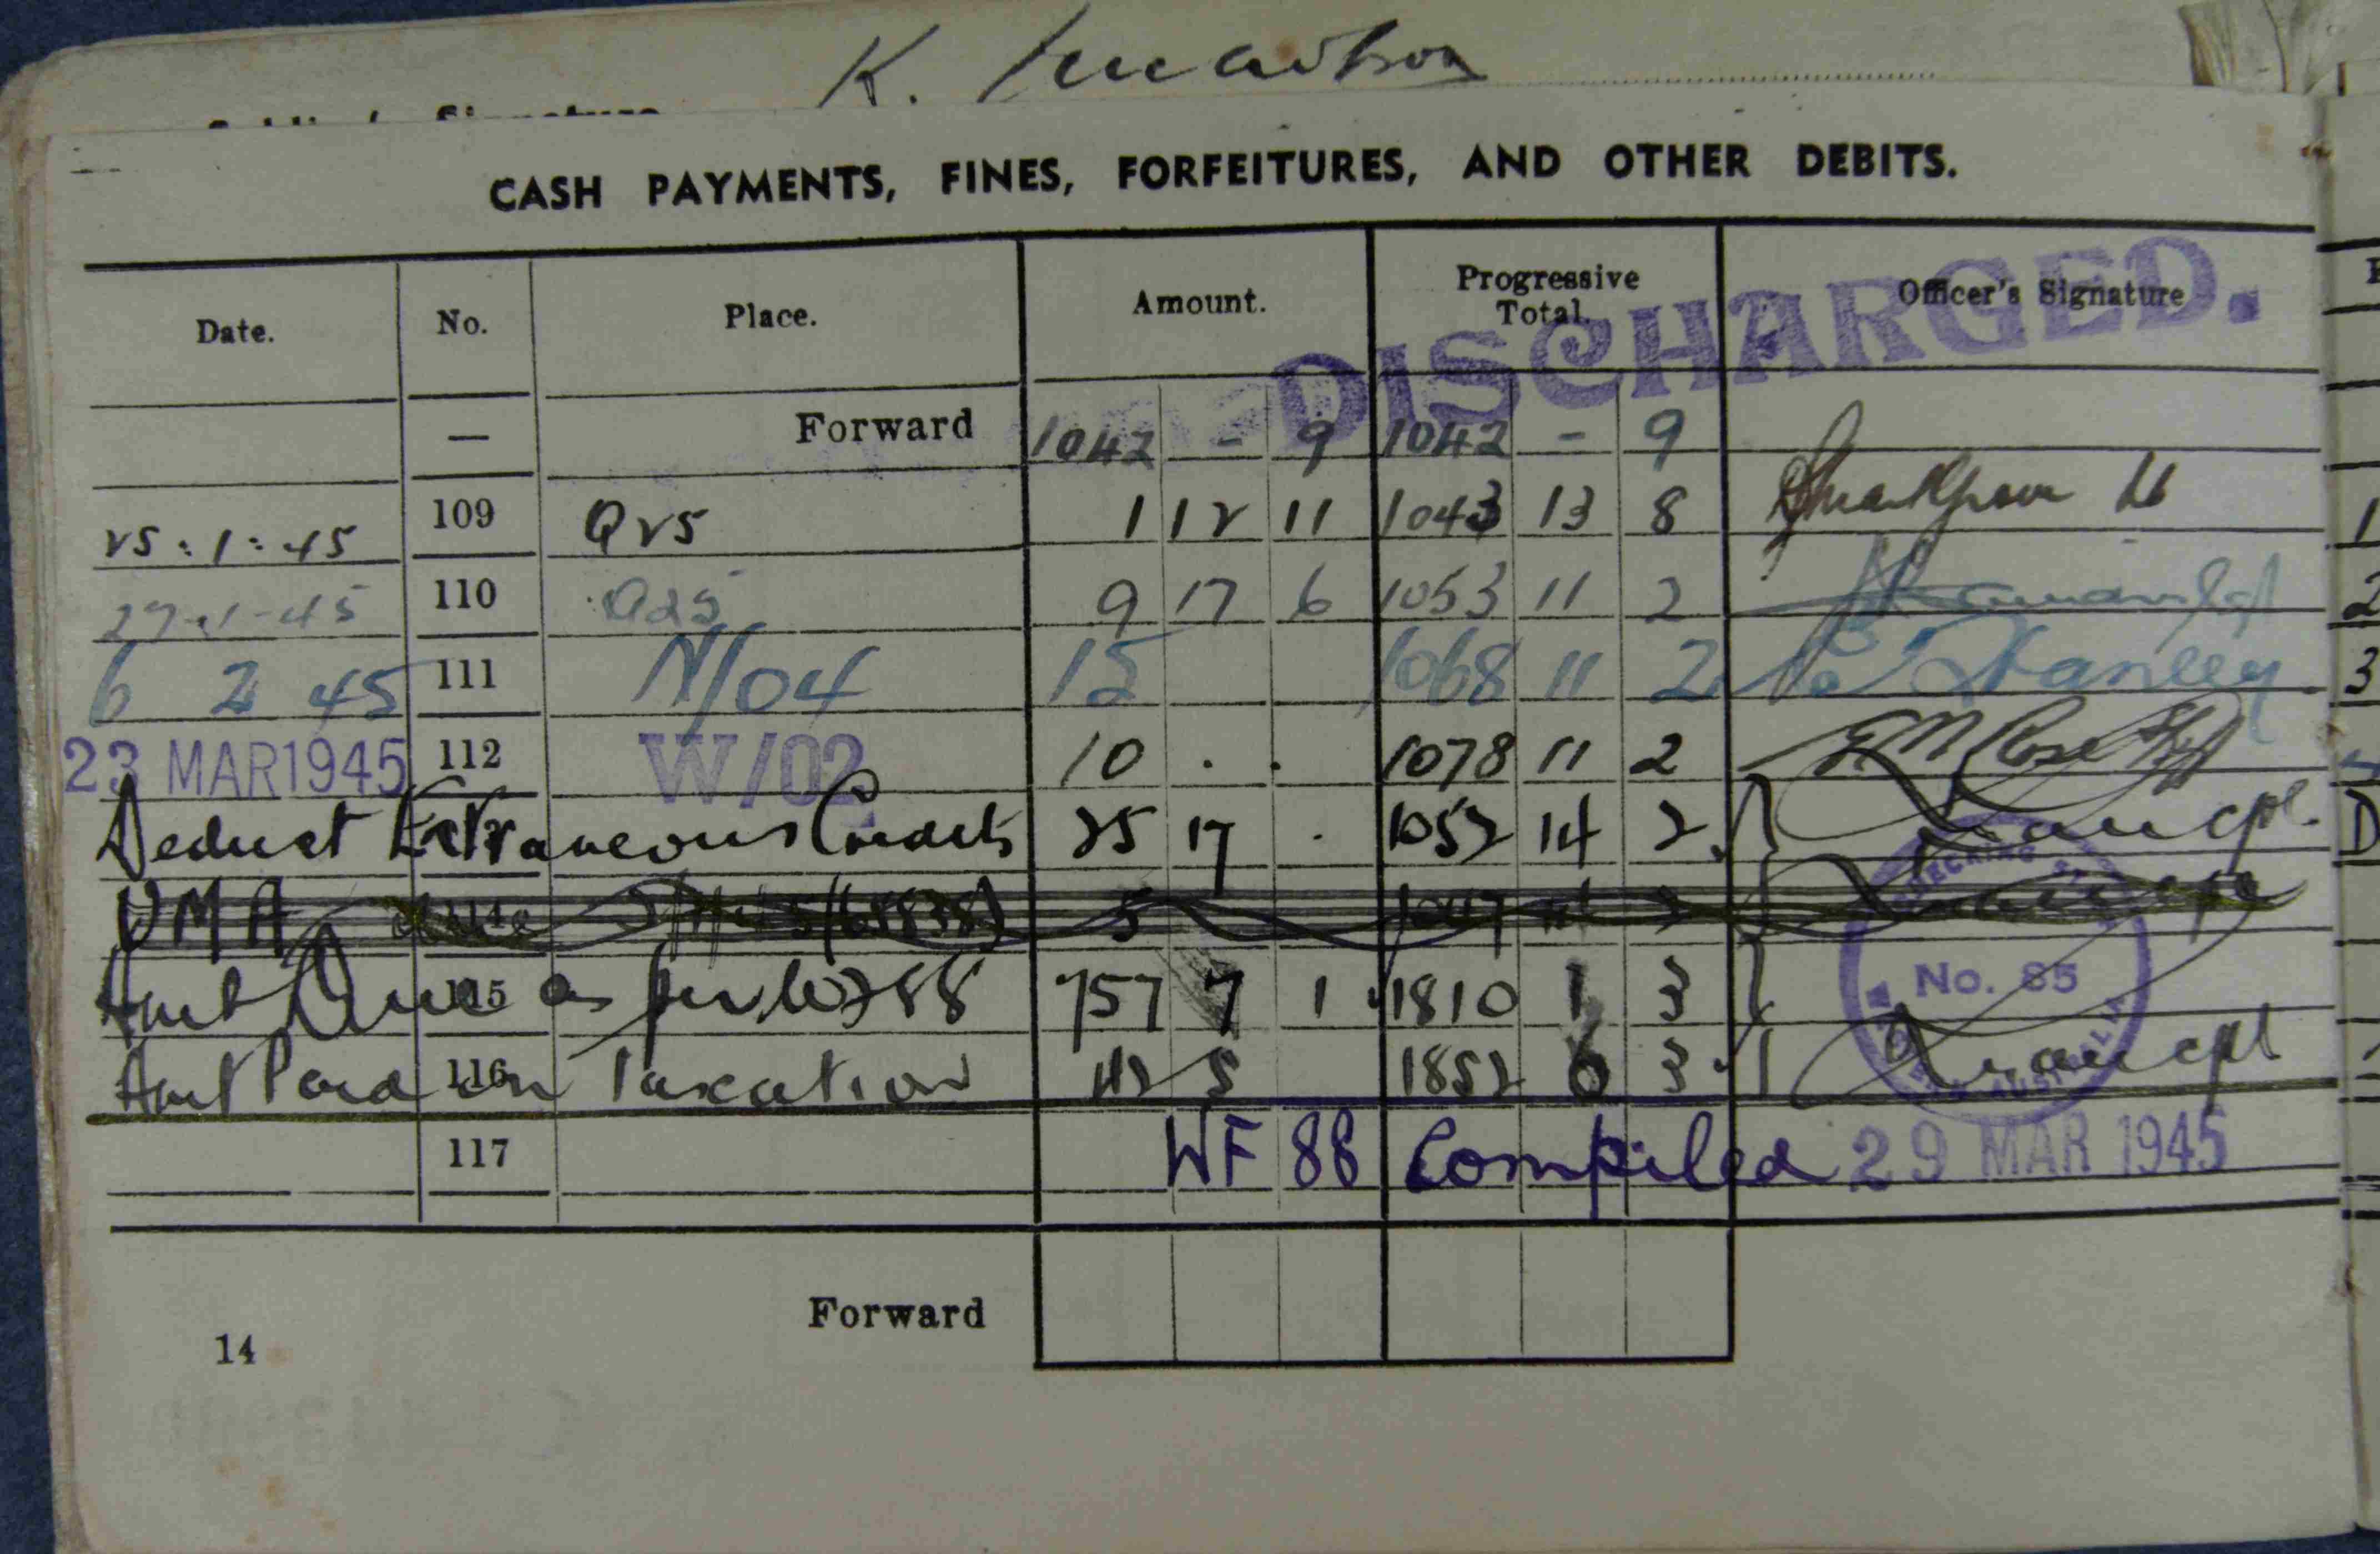 K.
CASH PAYMENTS, FINES, FORFEITURES, AND OTHER DEBITS.
Date. No. Place. Amount. Progressive Total. Officer's Signature
DISCHARGED.
— Forward 1042 - 9 1042 - 9
25:1:45 109 Q25 1 12 11 1043 13 8 Lt
27-1-45 110 Q25 9 17 6 1053 11 2
6 2 45 111 N/04 15 1068 11 2 Stanley
23 MAR 1945 112 W/02 10 . . 1078 11 2 E M Rose
Deduct Extraneous Credits 25 17 . 1052 14 2 cpl.
DMA 5 1047 14 2
Amt Due 115 as per 88 757 7 1 1810 1 3
CHECKING No. 85
Amt Paid 116 on Taxation 42 5 1852 6 3 cpl
117 WF 88 Compiled 29 MAR 1945
Forward
14